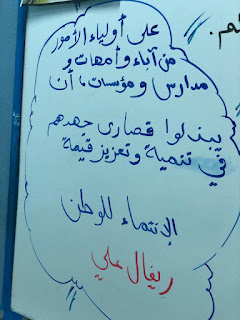 هم.
على أولياء الأمور
من آباء وأمهات و
مدارس ومؤسسات، أن
يبذلوا قصارى جهدهم
في تنمية وتعزيز قيمة
الإنتماء للوطن
ريفال علي